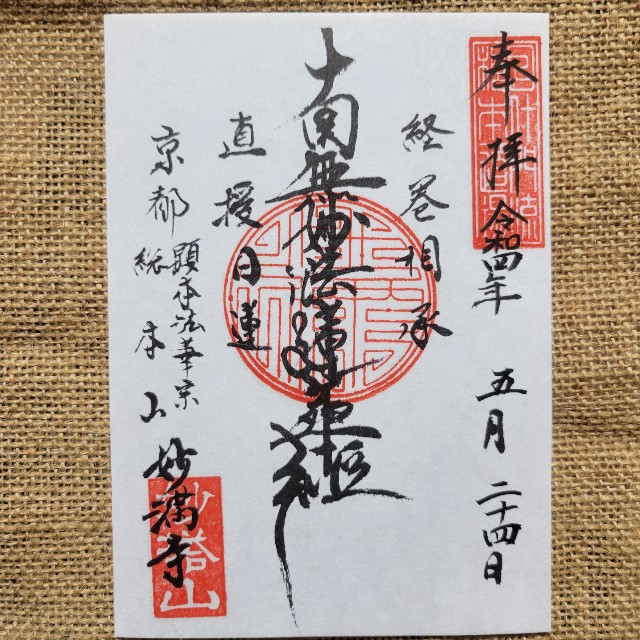 奉拝 令和四年 五月 二十四日
経巻相承
南無妙法蓮華経
直授日蓮
顕本法華宗
京都 総本山 妙満寺
妙塔山